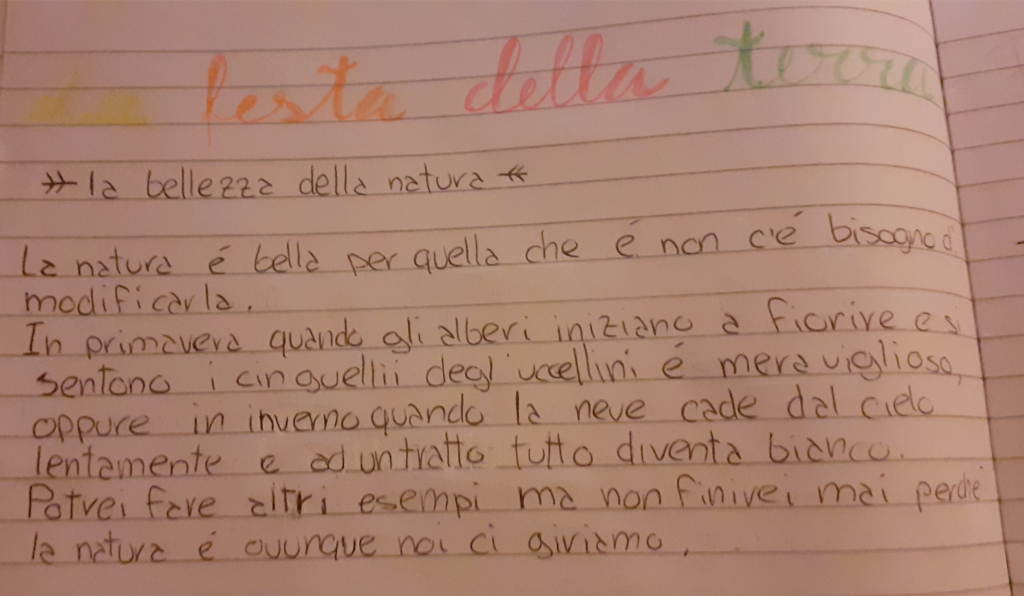 La festa della terra
la bellezza della natura
La natura é bella per quella che é non c'é bisogno di
modificarla.
In primavera quando gli alberi iniziano a fiorire e si
sentono i cinguellii degl'uccellini é meraviglioso,
oppure in inverno quando la neve cade dal cielo
lentamente e ad un tratto tutto diventa bianco.
Potrei fare altri esempi ma non finirei mai perché
la natura é ovunque noi ci giriamo.